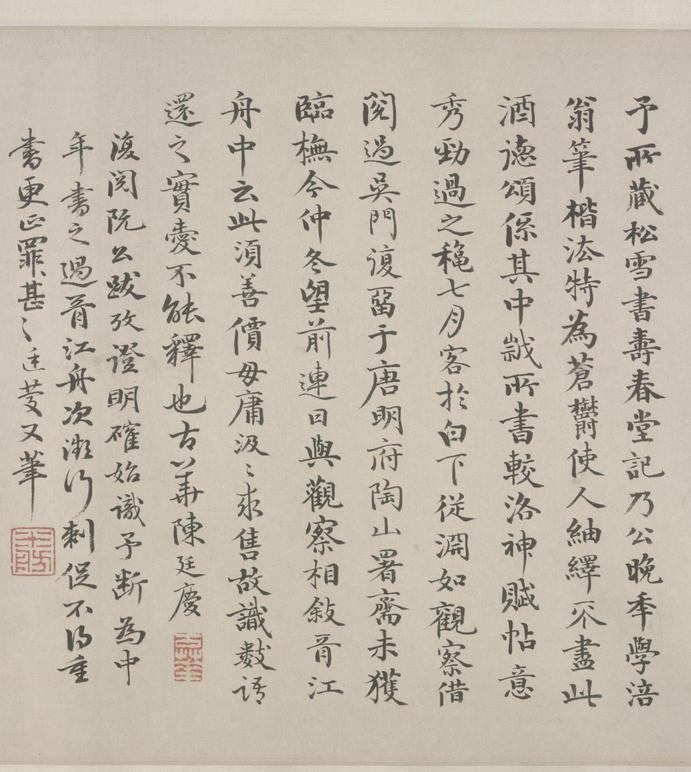 予所藏松雪書壽春堂記乃公晚季學涪
翁筆楷法特為蒼鬱使人紬繹不盡此
酒德頌係其中誠所書較洛神賦帖意
秀勁過之龝七月客於白下從淵如觀察借
閱過吳門復留于唐明府陶山署齋未獲
臨橅今仲冬望前連日與觀察相敘胥江
舟中云此須善價毋庸汲〻求售故識數語
還之實㤅不能釋也古華陳廷慶
復閱阮公跋攷證明確始識予斷為中
年書之過胥江舟次漸行刺促不得重
書更正罪甚〻廷慶又筆